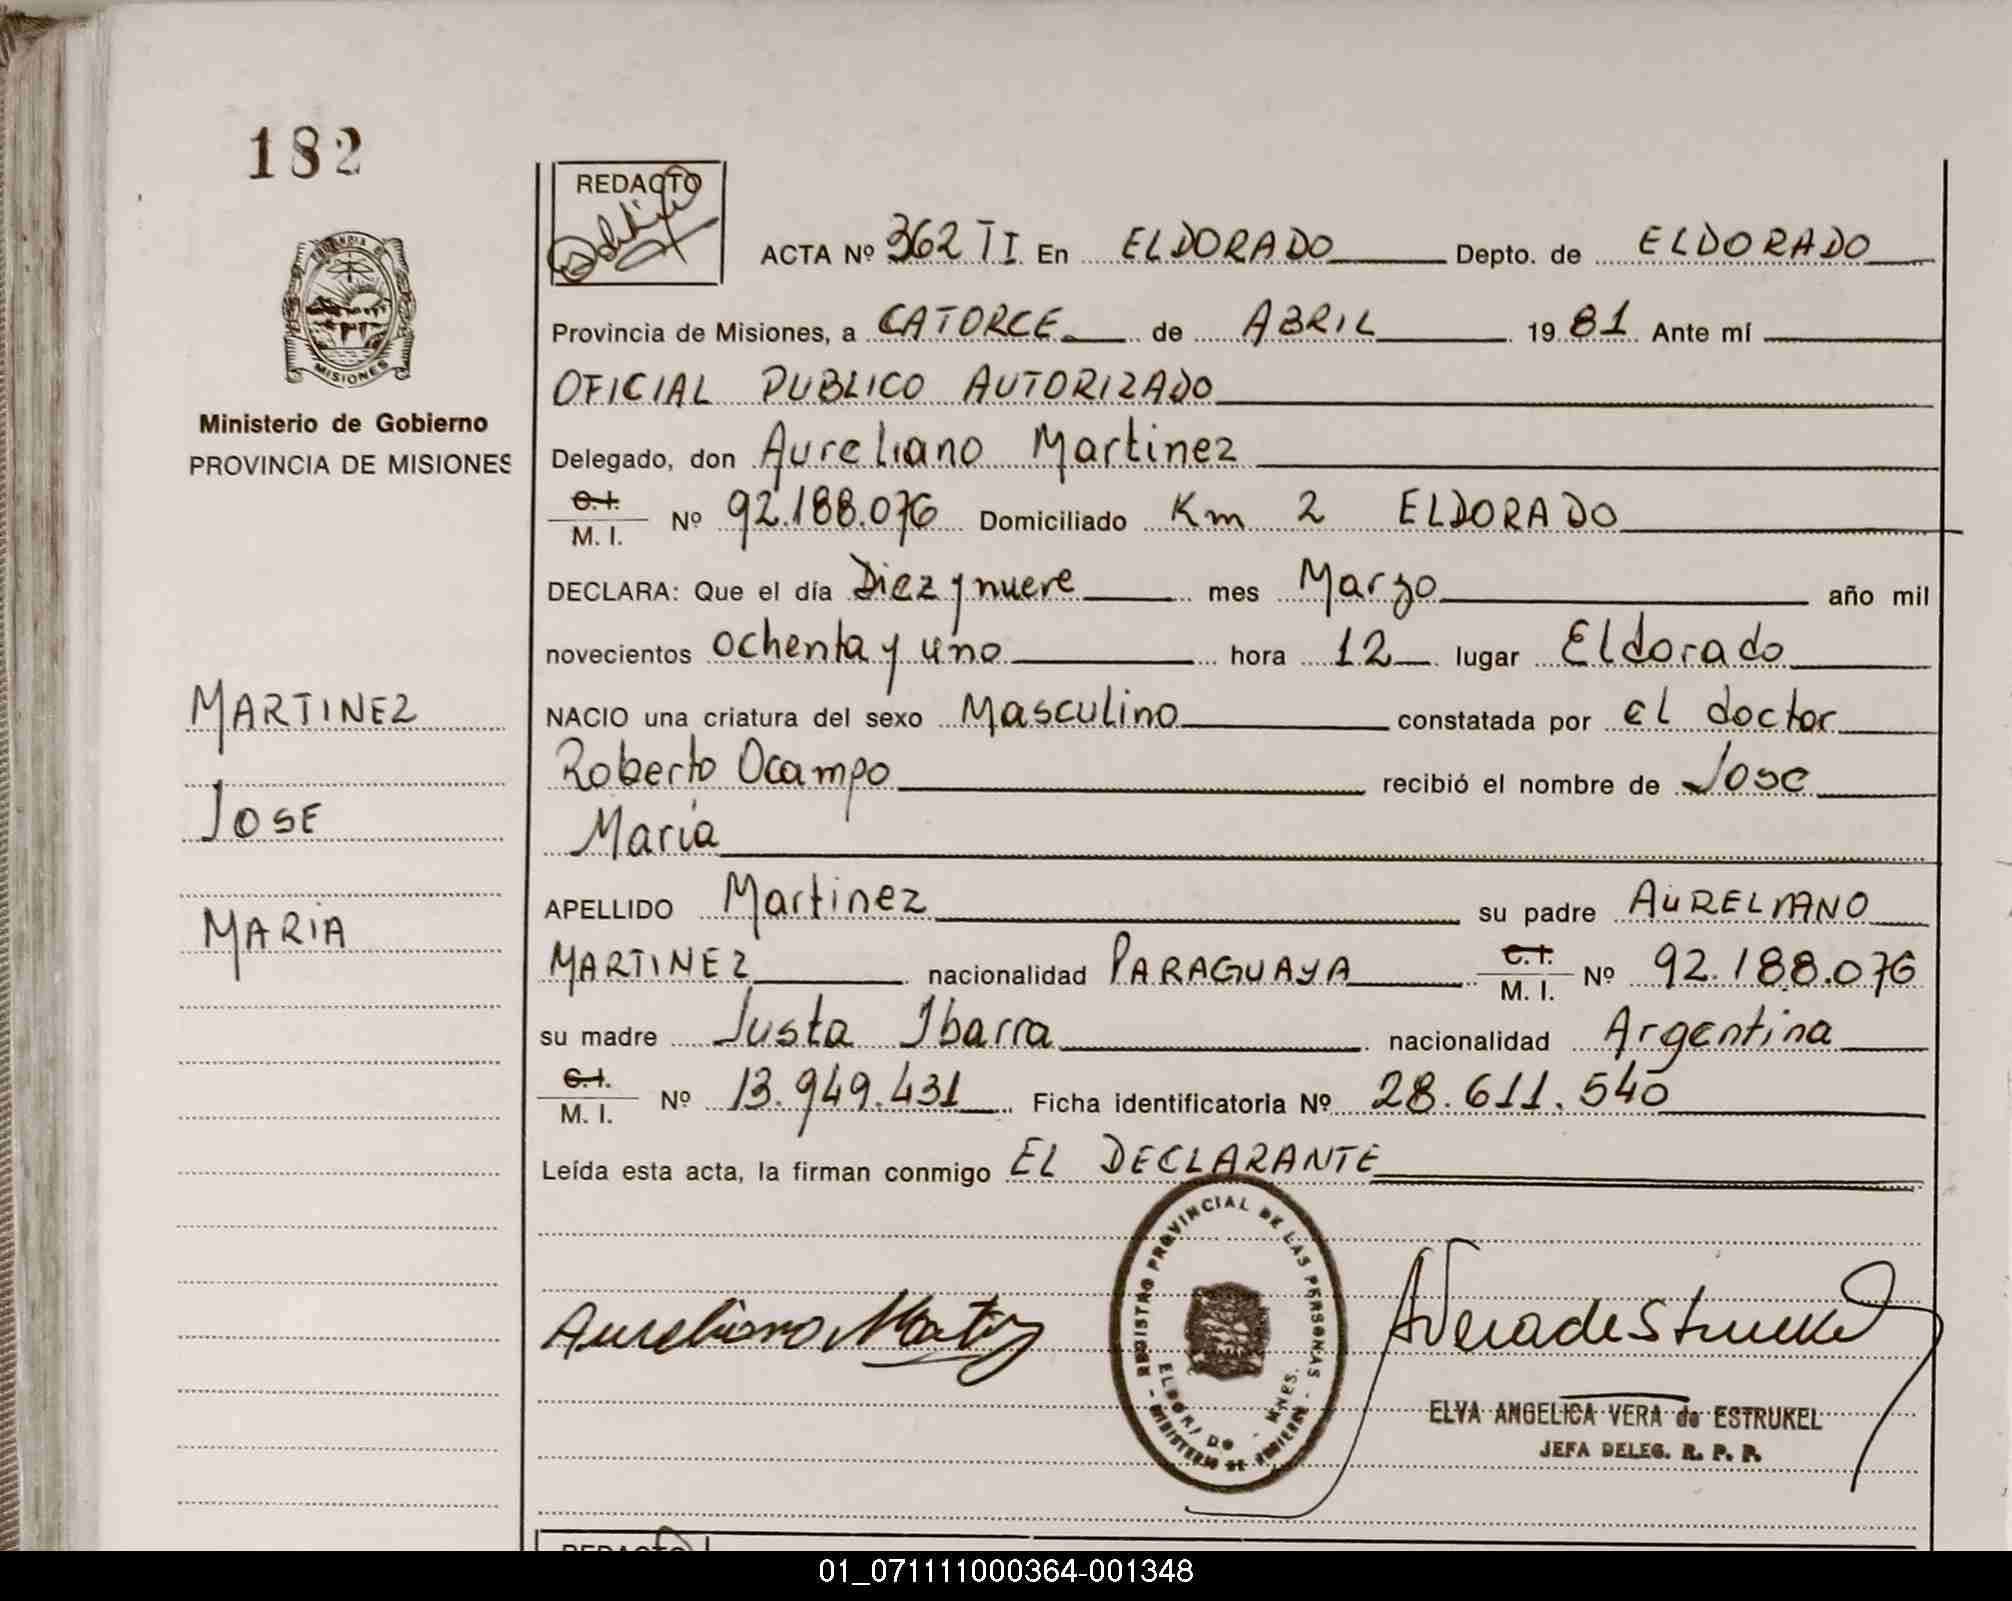 182
REDACTO
ACTA Nº 362 TI En ELDORADO Depto. de ELDORADO
Provincia de Misiones, a CATORCE de ABRIL 19 81 Ante mí
OFICIAL PUBLICO AUTORIZADO
MISIONES
Ministerio de Gobierno
PROVINCIA DE MISIONES
Delegado, don Aureliano Martinez
C.I.
M. I. Nº 92.188.076 Domiciliado Km 2 ELDORADO
DECLARA: Que el día Diez y nueve mes Marzo año mil
novecientos ochenta y uno hora 12 lugar Eldorado
NACIO una criatura del sexo Masculino constatada por el doctor
Roberto Ocampo recibió el nombre de Jose
Maria
MARTINEZ
JOSE
MARIA
APELLIDO Martinez su padre AURELIANO
MARTINEZ nacionalidad PARAGUAYA C.I. M. I. Nº 92.188.076
su madre Justa Ibarra nacionalidad Argentina
C.I.
M. I. Nº 13.949.431 Ficha identificatoria Nº 28.611.540
Leída esta acta, la firman conmigo EL DECLARANTE
REGISTRO PROVINCIAL DE LAS PERSONAS
ELDORADO - MNES.
MINISTERIO DE GOBIERNO
Aureliano Martinez
AVeradeStrukel
ELVA ANGELICA VERA de ESTRUKEL
JEFA DELEG. R. P. P.
REDACTO
01_071111000364-001348